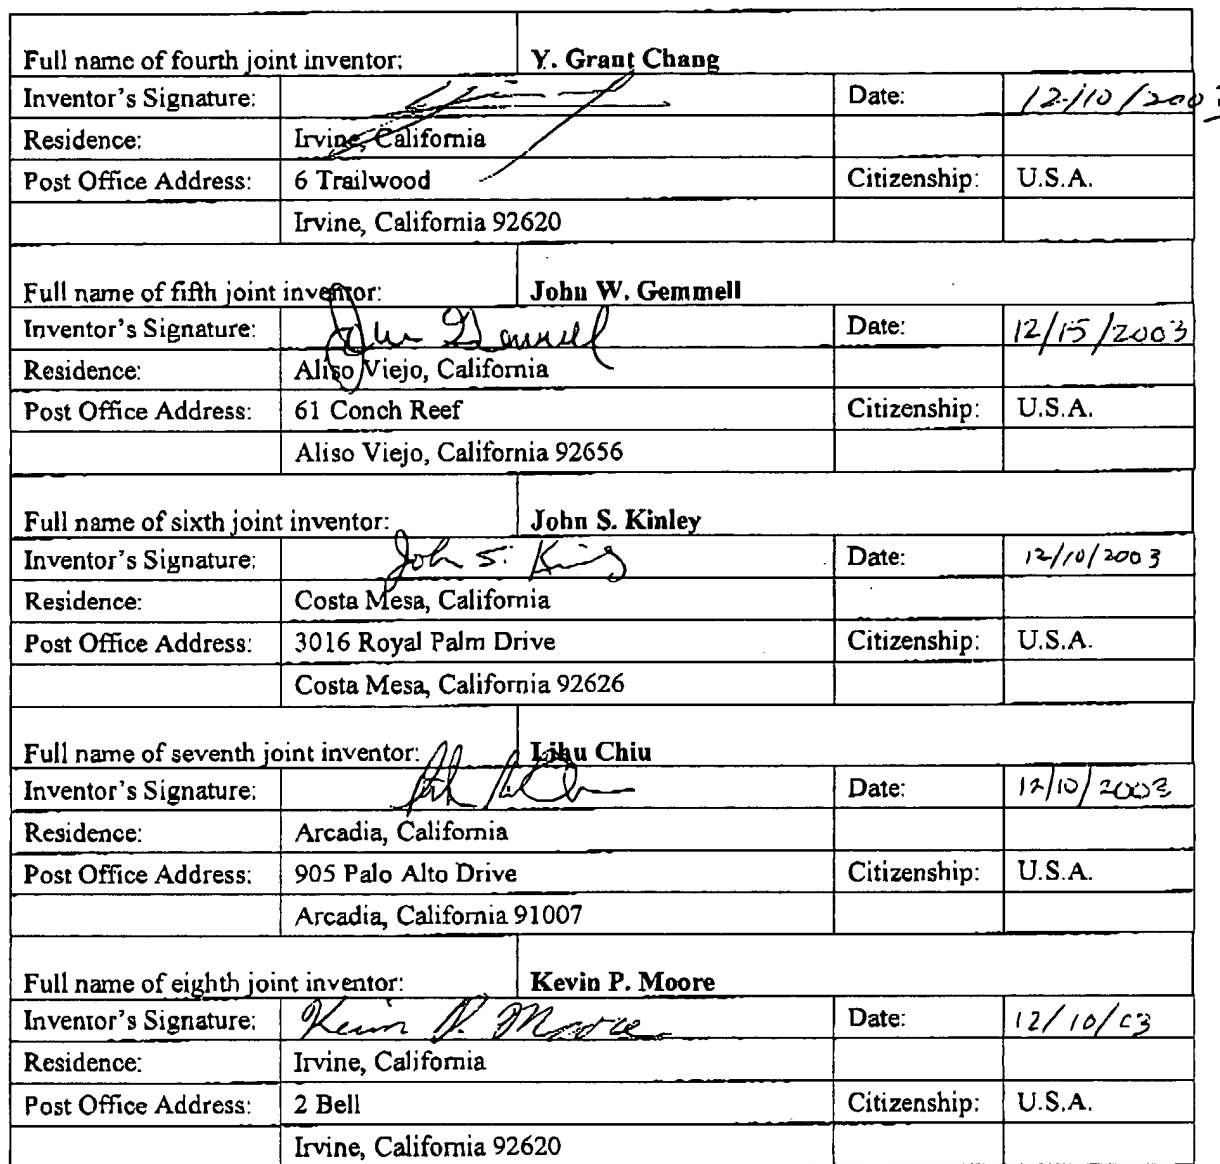 Full name of fourth joint inventor: Y. Grant Chang
Inventor's Signature: Date: 12/10/2003
Residence: Irvine, California
Post Office Address: 6 Trailwood Citizenship: U.S.A.
Irvine, California 92620
Full name of fifth joint inventor: John W. Gemmell
Inventor's Signature: John Gemmell Date: 12/15/2003
Residence: Aliso Viejo, California
Post Office Address: 61 Conch Reef Citizenship: U.S.A.
Aliso Viejo, California 92656
Full name of sixth joint inventor: John S. Kinley
Inventor's Signature: John S. Date: 12/10/2003
Residence: Costa Mesa, California
Post Office Address: 3016 Royal Palm Drive Citizenship: U.S.A.
Costa Mesa, California 92626
Full name of seventh joint inventor: Lihu Chiu
Inventor's Signature: Date: 12/10/2003
Residence: Arcadia, California
Post Office Address: 905 Palo Alto Drive Citizenship: U.S.A.
Arcadia, California 91007
Full name of eighth joint inventor: Kevin P. Moore
Inventor's Signature: Kevin P. Moore Date: 12/10/03
Residence: Irvine, California
Post Office Address: 2 Bell Citizenship: U.S.A.
Irvine, California 92620